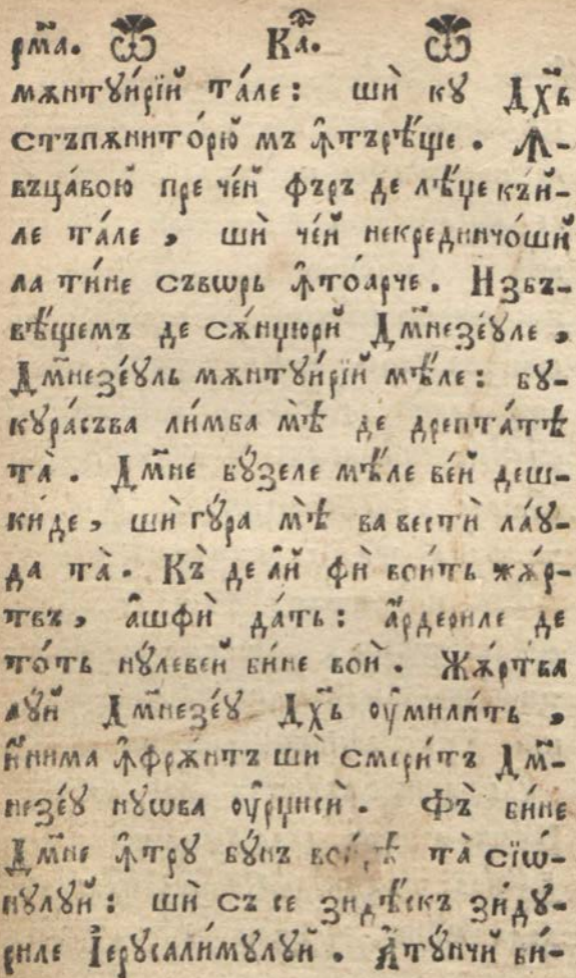 рм҃а. Ка҃.
мѫнтꙋи́рїй та́ле: шѝ кꙋ Дх҃ъ
стъпѫнито́рю мъ ꙟ҆търѣ́ще. Ꙟ-
въца́вою пре че́й фъръ де лѣ́ӂе къ́й-
ле та́ле, шѝ че́й некрединчо́шй
ла ти́не съвѡрь ꙟ҆то́арче. Избъ-
вѣ́щемъ де сѫ́нџюрй Дм҃незе́ꙋле,
Дм҃незе́ꙋль мѫнтꙋи́рїй мѣ́ле: бꙋ-
кꙋра́съва ли́мба мѣ̀ де дрепта́тѣ
та̀. Дм҃не бꙋ́зеле мѣ́ле ве́й деш-
ки́де, шѝ гꙋ́ра мѣ̀ ва вестѝ ла́ꙋ-
да та̀. Къ̀ де а҆́й фѝ вои́ть жѫ́р-
твъ, а҆́шфѝ да́ть: а҆́рдериле де
то́ть нꙋ́левей би́не воѝ. Жѫ́ртва
лꙋ́й Дм҃незе́ꙋ Дх҃ъ оу҆мили́ть,
и҆́нима ꙟ҆фрѫ́нтъ шѝ смери́тъ Дм҃-
незе́ꙋ нꙋѡва оу҆рџисѝ. Фъ̀ би́не
Дм҃не ꙟ҆трꙋ бꙋ́нъ та̀ сїѡ́-
нꙋлꙋй: шѝ съ се зидѣ́скъ зи́дꙋ-
риле І҆ерꙋсали́мꙋлꙋй. А҆тꙋ́нчй би́-